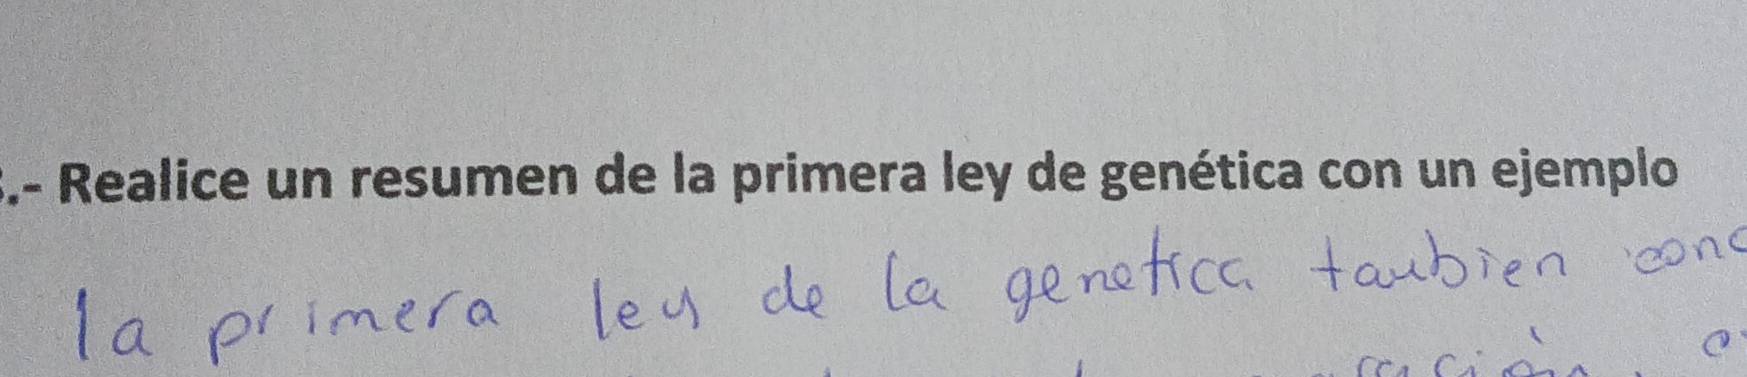 .- Realice un resumen de la primera ley de genética con un ejemplo
la primera ley de la genetica taubien